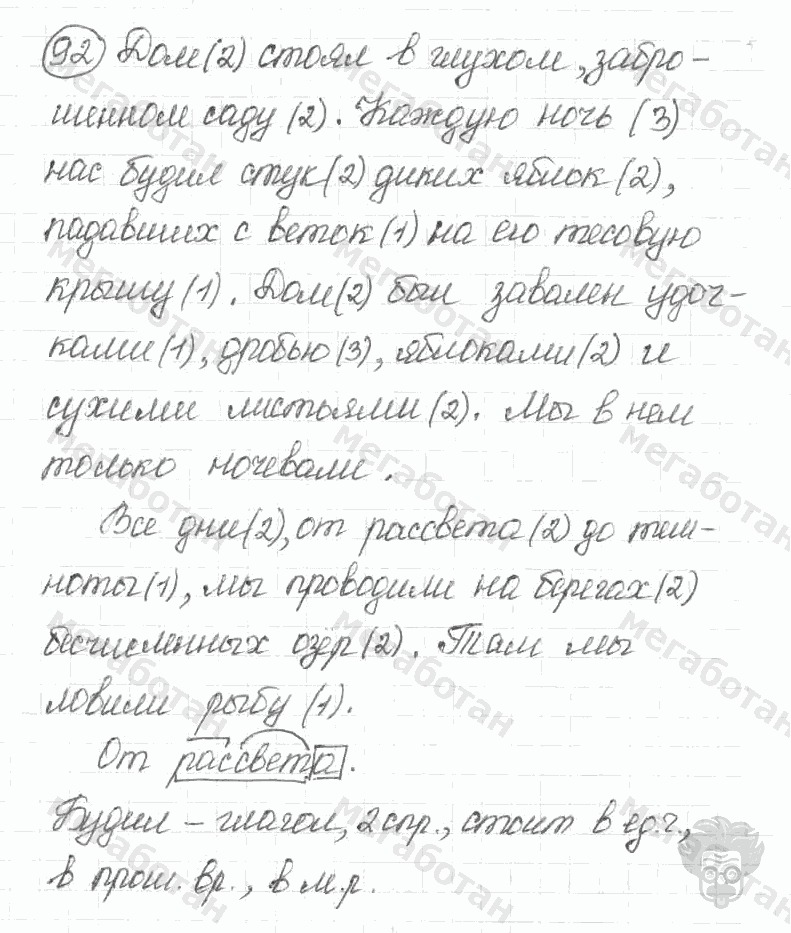 92 Дом(2) стоял в глухом, забро-
шенном саду (2). Каждую ночь (3)
нас будил стук(2) диких яблок(2),
падавших с веток(1) на его тесовую
крышу(1). Дом(2) был завален удоч-
ками(1), дробью(3), яблоками(2) и
сухими листьями(2). Мы в нем
только ночевали.
Все дни(2), от рассвета(2) до тем-
ноты(1), мы проводили на берегах(2)
бесчисленных озёр(2). Там мы
ловили рыбу (1).
От рассвета.
Будил – глагол, 2 спр., стоит в ед.ч.,
в прош. вр., в м.р.
мегаботан